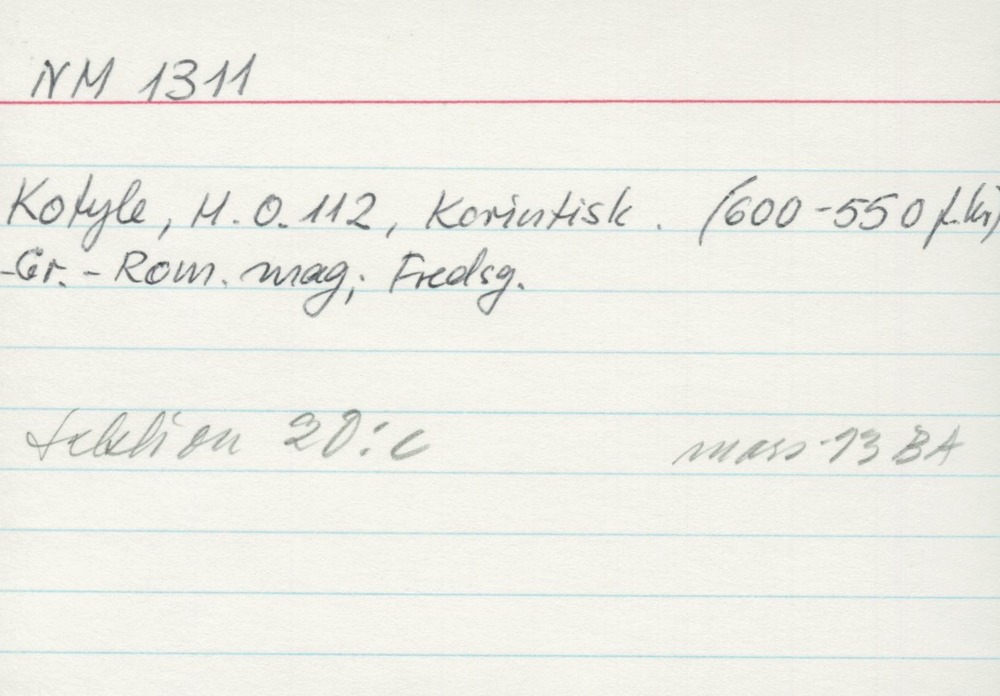 NM 1311
Kotyle, M.O. 112, Korintisk. (600-550 f.kr)
-Gr.-Rom. mag; Fredsg.
sektion 20:c mars-93 BA